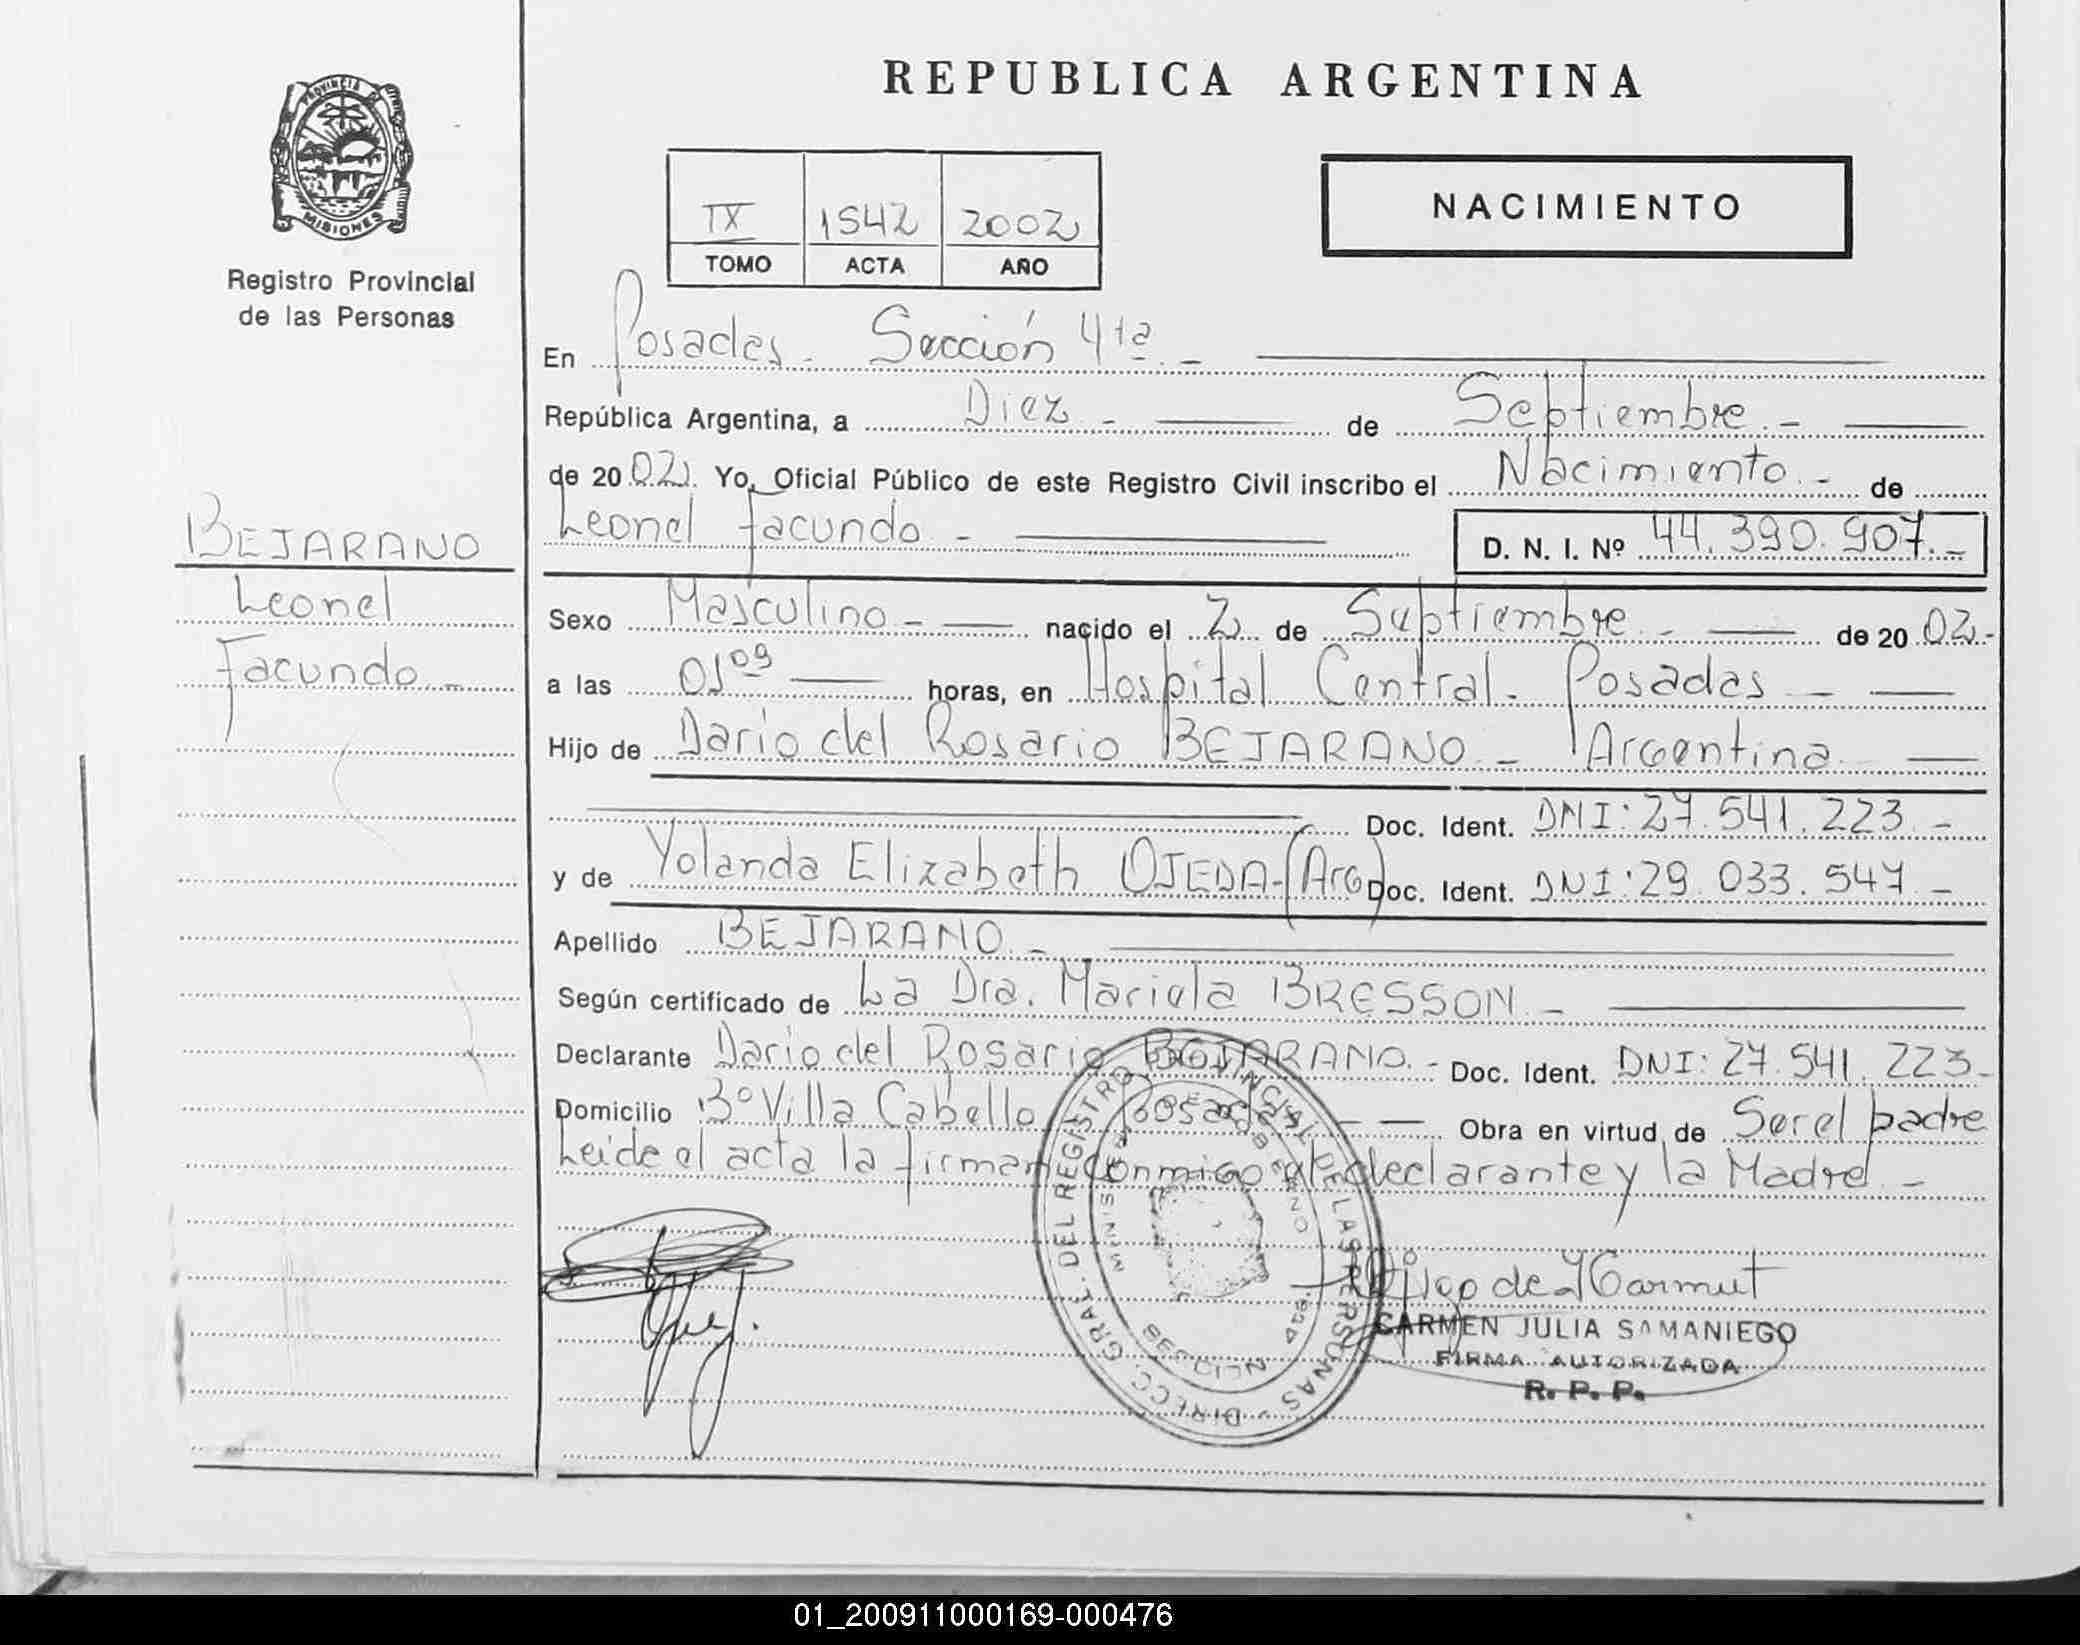 REPUBLICA ARGENTINA
PROVINCIA DE
MISIONES
Registro Provincial
de las Personas
NACIMIENTO
IX 1542 2002
TOMO ACTA AÑO
En Posadas - Sección 4ta. -
República Argentina, a Diez - de Septiembre. -
de 2002. Yo, Oficial Público de este Registro Civil inscribo el Nacimiento. - de
Leonel Facundo - D. N. I. Nº 44.390.907. -
BEJARANO
Leonel
Facundo. -
Sexo Masculino - nacido el 2 de Septiembre. - de 2002. -
a las 01 09 horas, en Hospital Central. Posadas -
Hijo de Dario del Rosario BEJARANO. - Argentina
Doc. Ident. DNI: 27.541.223. -
y de Yolanda Elizabeth OJEDA - (Arg) Doc. Ident. DNI: 29.033.547. -
Apellido BEJARANO. -
Según certificado de La Dra. Mariela BRESSON. -
Declarante Dario del Rosario BEJARANO. - Doc. Ident. DNI: 27.541.223. -
Domicilio Bº Villa Cabello Posadas - Obra en virtud de Ser el padre
Leide el acta la firman conmigo el declarante y la Madre. -
DIRECC. GRAL. DEL REGISTRO PROVINCIAL DE LAS PERSONAS
CARMEN JULIA SAMANIEGO
FIRMA AUTORIZADA
R. P. P.
01_200911000169-000476